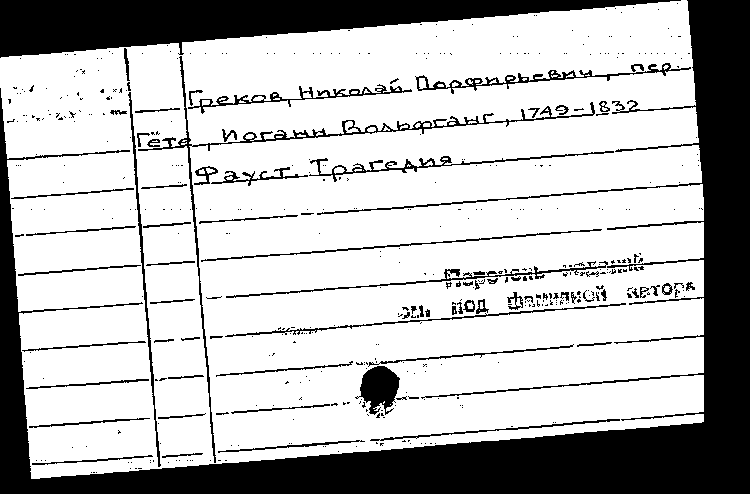 Греков, Николай Порфирьевич, пер.
Гёте, Иоганн Вольфганг, 1749-1832
Фауст. Трагедия.
Перечень изданий
см. под фамилией автора